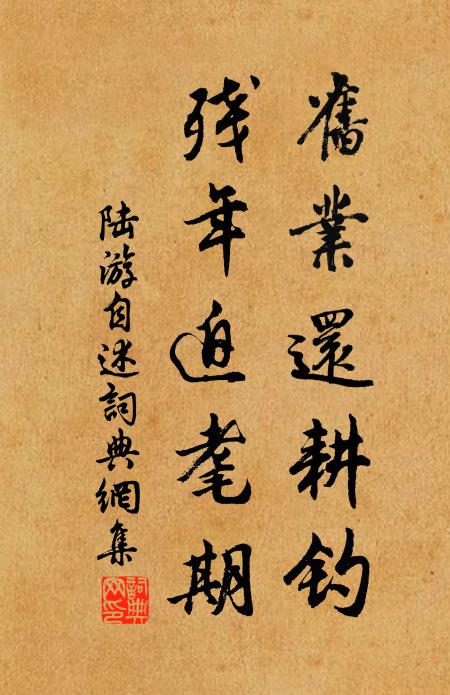 舊業還耕釣
残年迫耄期
陆游自述詞典網集
詞典网印